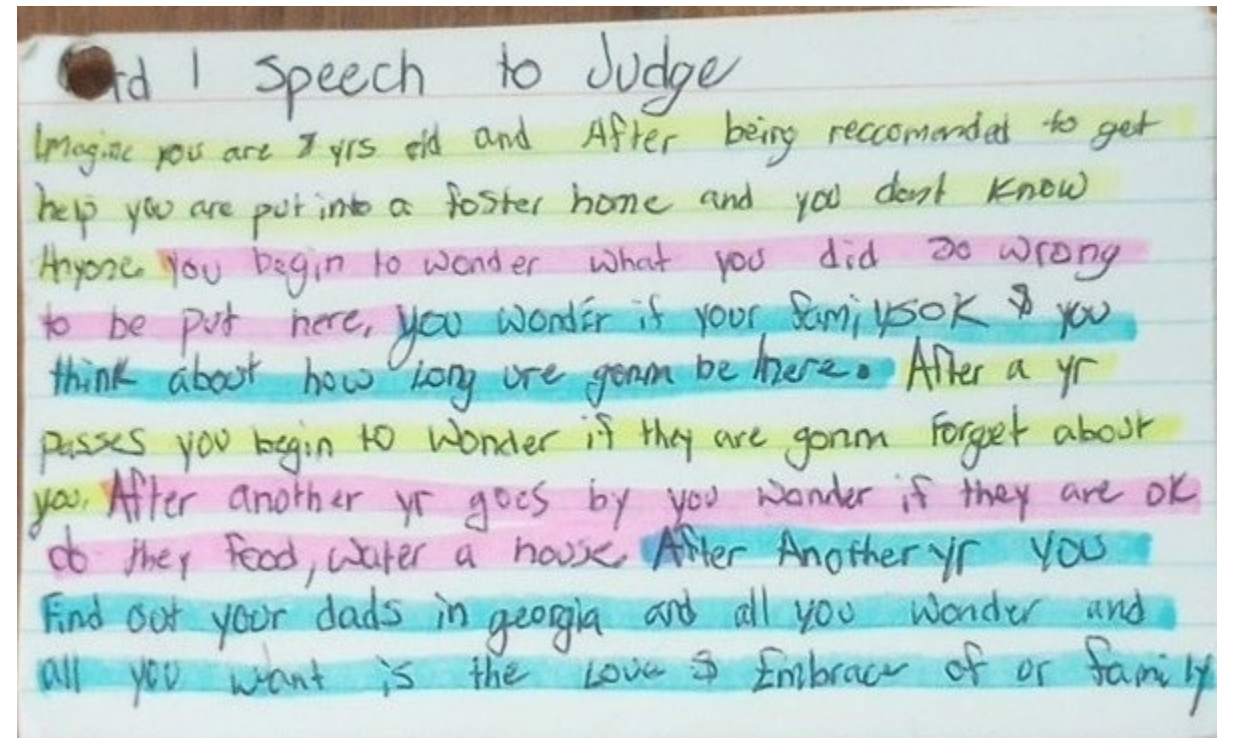 Card 1 Speech to Judge
Imagine you are 7 yrs old and After being reccomanded to get
help you are put into a foster home and you dont know
Anyone. you begin to wonder what you did so wrong
to be put here, you wonder if your family is OK & you
think about how long ure gonna be here. After a yr
passes you begin to wonder if they are gonna forget about
you. After another yr goes by you wonder if they are ok
do they food, water a house. After Another yr you
Find out your dads in georgia and all you wonder and
all you want is the Love & Embrace of or family